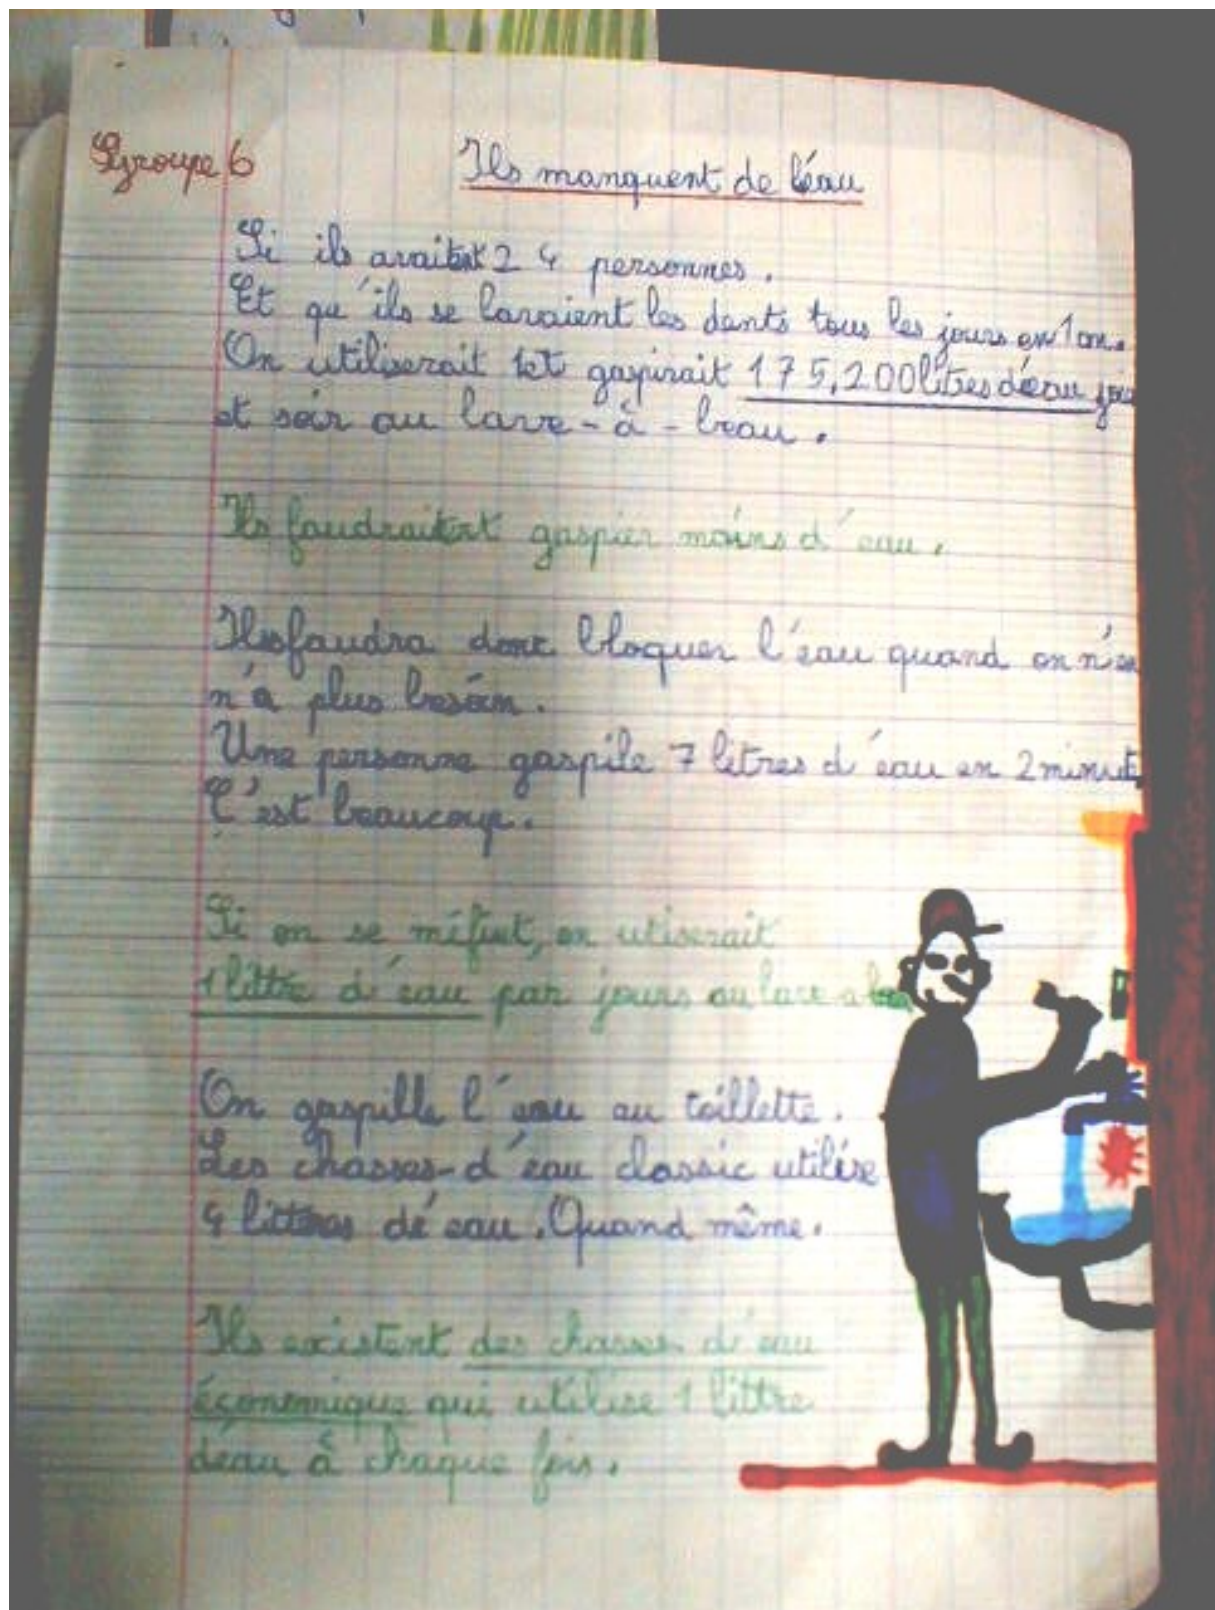 Groupe 6
Ils manquent de l'éau
Si ils avaitent 2 4 personnes.
Et qu'ils se lavaient les dents tous les jours en 1 an.
On utiliserait et gaspirait 175,200 litres d'éau
et soir au lave-à-beau.
Ils faudraitent gaspier moins d'eau.
Ils faudra donc bloquer l'eau quand on n'en
n'a plus besoin.
Une personne gaspile 7 litres d'eau en 2 minut
C'est beaucoup.
Si on se méfiet, on utiserait
1 littre d'eau par jours au lave a
On gaspille l'eau au toillette.
Les chasses-d'eau classic utilise
4 littres dé'eau. Quand même.
Ils existent des chasses d'eau
éçonomique qui utilise 1 littre
deau à chaque fois.